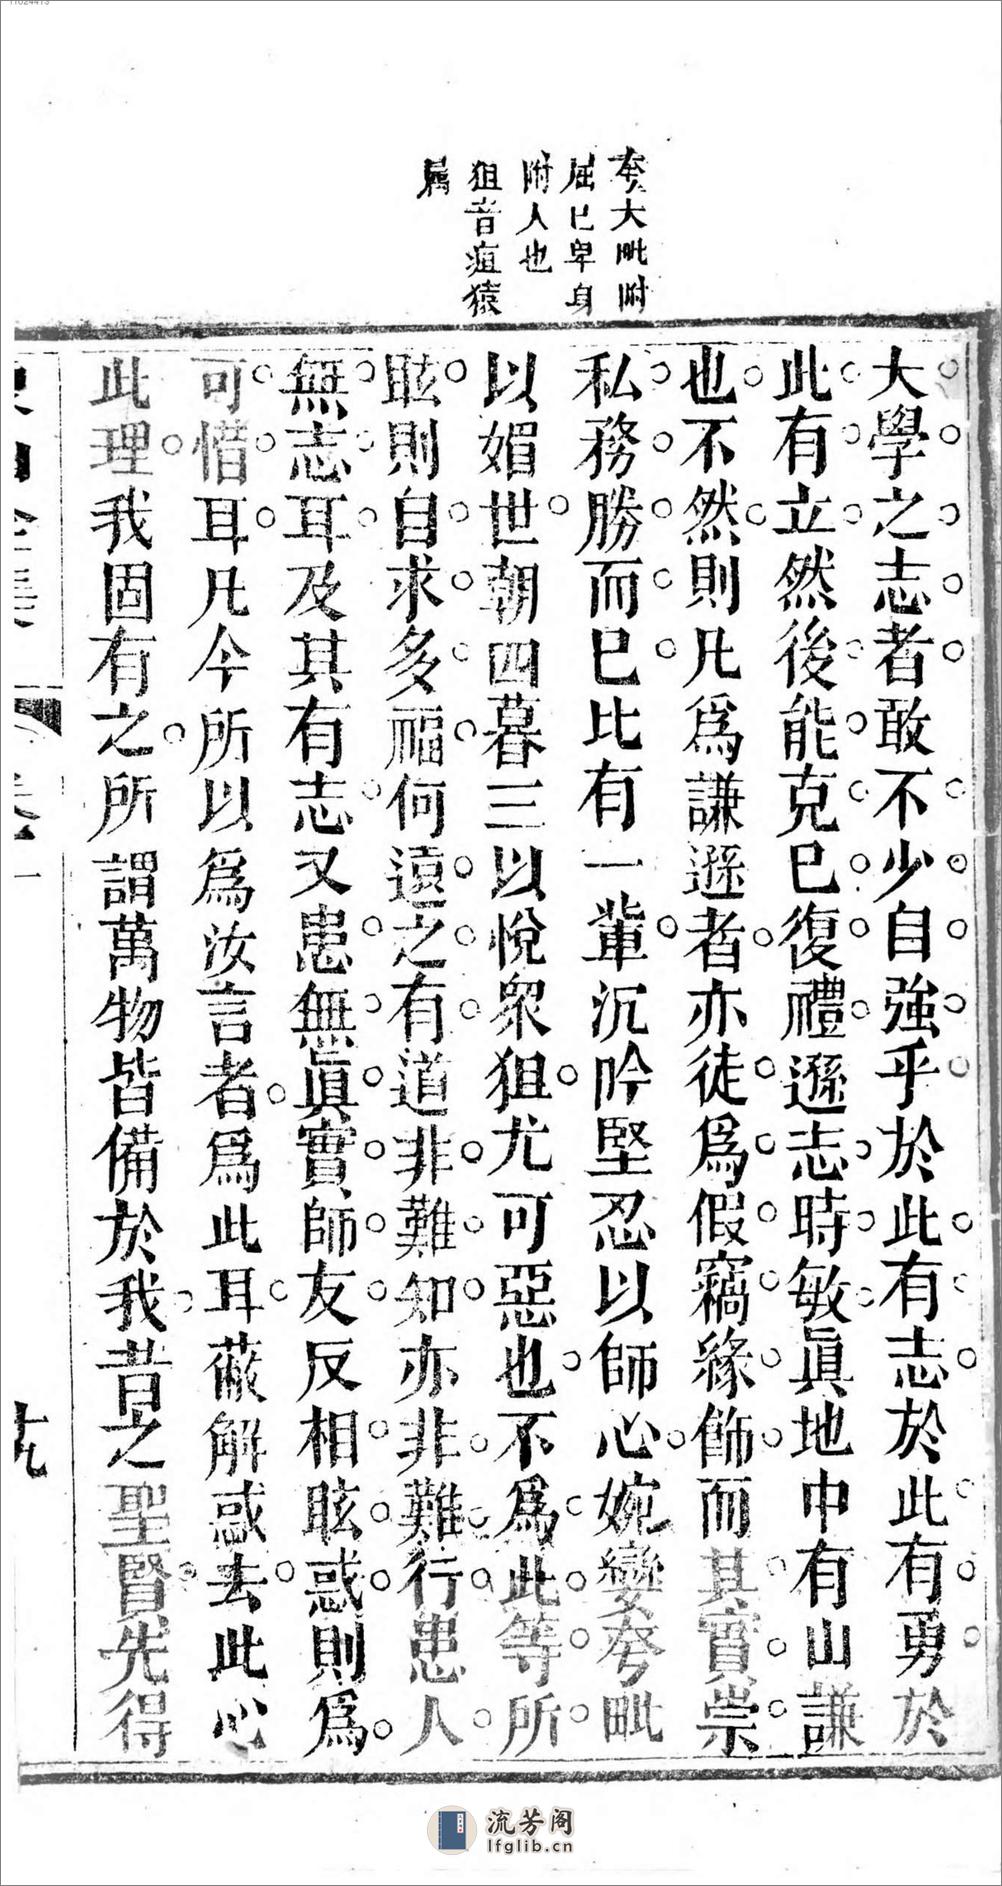 11024413
夸大毗附
屈已卑身
附人也
狙音疽猿
屬
大學之志者敢不少自強乎於此有志於此有勇於
此有立然後能克已復禮遜志時敏眞地中有山謙
也不然則凡爲謙遜者亦徒爲假竊緣飾而其實崇
私務勝而已比有一輩沉吟堅忍以師心婉孌夸毗
以媚世朝四暮三以悅衆狙尤可惡也不爲此等所
眩則自求多福何遠之有道非難知亦非難行患人
無志耳及其有志又患無眞實師友反相眩惑則爲
可惜耳凡今所以爲汝言者爲此耳蔽解惑去此心
此理我固有之所謂萬物皆備於我昔之聖賢先得
卷一
十九
流芳阁
lfglib.cn